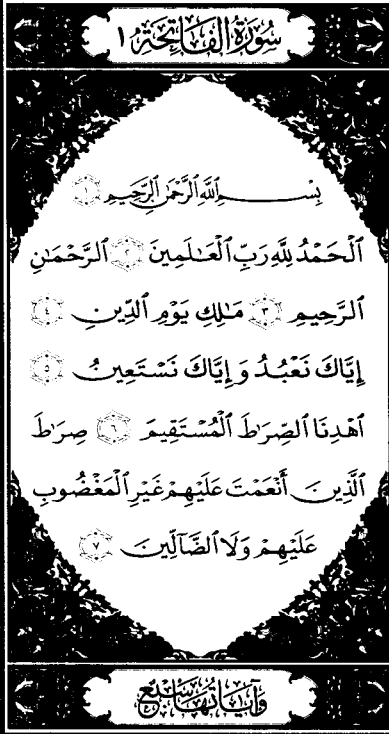 سُورَةُ الفَاتِحَةِ ١
بِسْمِ اللَّهِ الرَّحْمَٰنِ الرَّحِيمِ ١
الْحَمْدُ لِلَّهِ رَبِّ الْعَالَمِينَ ٢ الرَّحْمَٰنِ
الرَّحِيمِ ٣ مَالِكِ يَوْمِ الدِّينِ ٤
إِيَّاكَ نَعْبُدُ وَإِيَّاكَ نَسْتَعِينُ ٥
اهْدِنَا الصِّرَاطَ الْمُسْتَقِيمَ ٦ صِرَاطَ
الَّذِينَ أَنْعَمْتَ عَلَيْهِمْ غَيْرِ الْمَغْضُوبِ
عَلَيْهِمْ وَلَا الضَّالِّينَ ٧
وَآيَاتُهَا سَبْعٌ